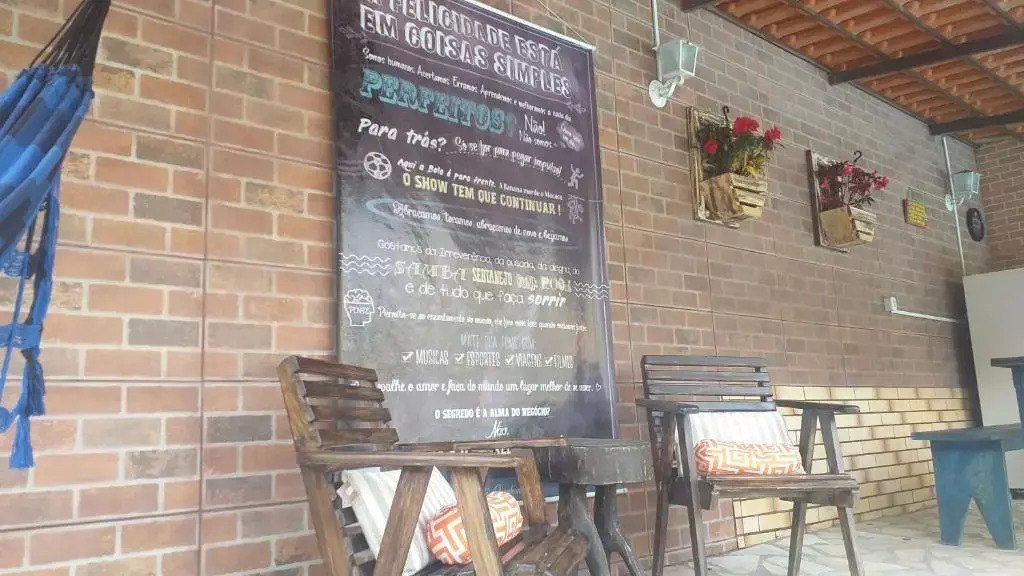 FELICIDADE ESTÁ
EM COISAS SIMPLES
Somos humanos. Acertamos. Erramos. Aprendemos e melhoramos a cada dia
PERFEITOS? Não!
Não somos
Para trás? Só se for para pegar impulso!
Aqui a Bola é para frente.
O SHOW TEM QUE CONTINUAR!
Abraçamos, tocamos, abraçamos de novo e beijamos
Gostamos da Irreverência, da ousadia, da alegria, do
SAMBA SERTANEJO ROCK
e de tudo que faça sorrir
PENSE
Permita-se ao encantamento do mundo, ele fica mais leve quando
MATE SUA FOME COM:
MUSICAS ESPORTES VIAGENS FILMES
espalhe o amor e faça do mundo um lugar melhor de se viver.
O SEGREDO É A ALMA DO NEGÓCIO?
Não.